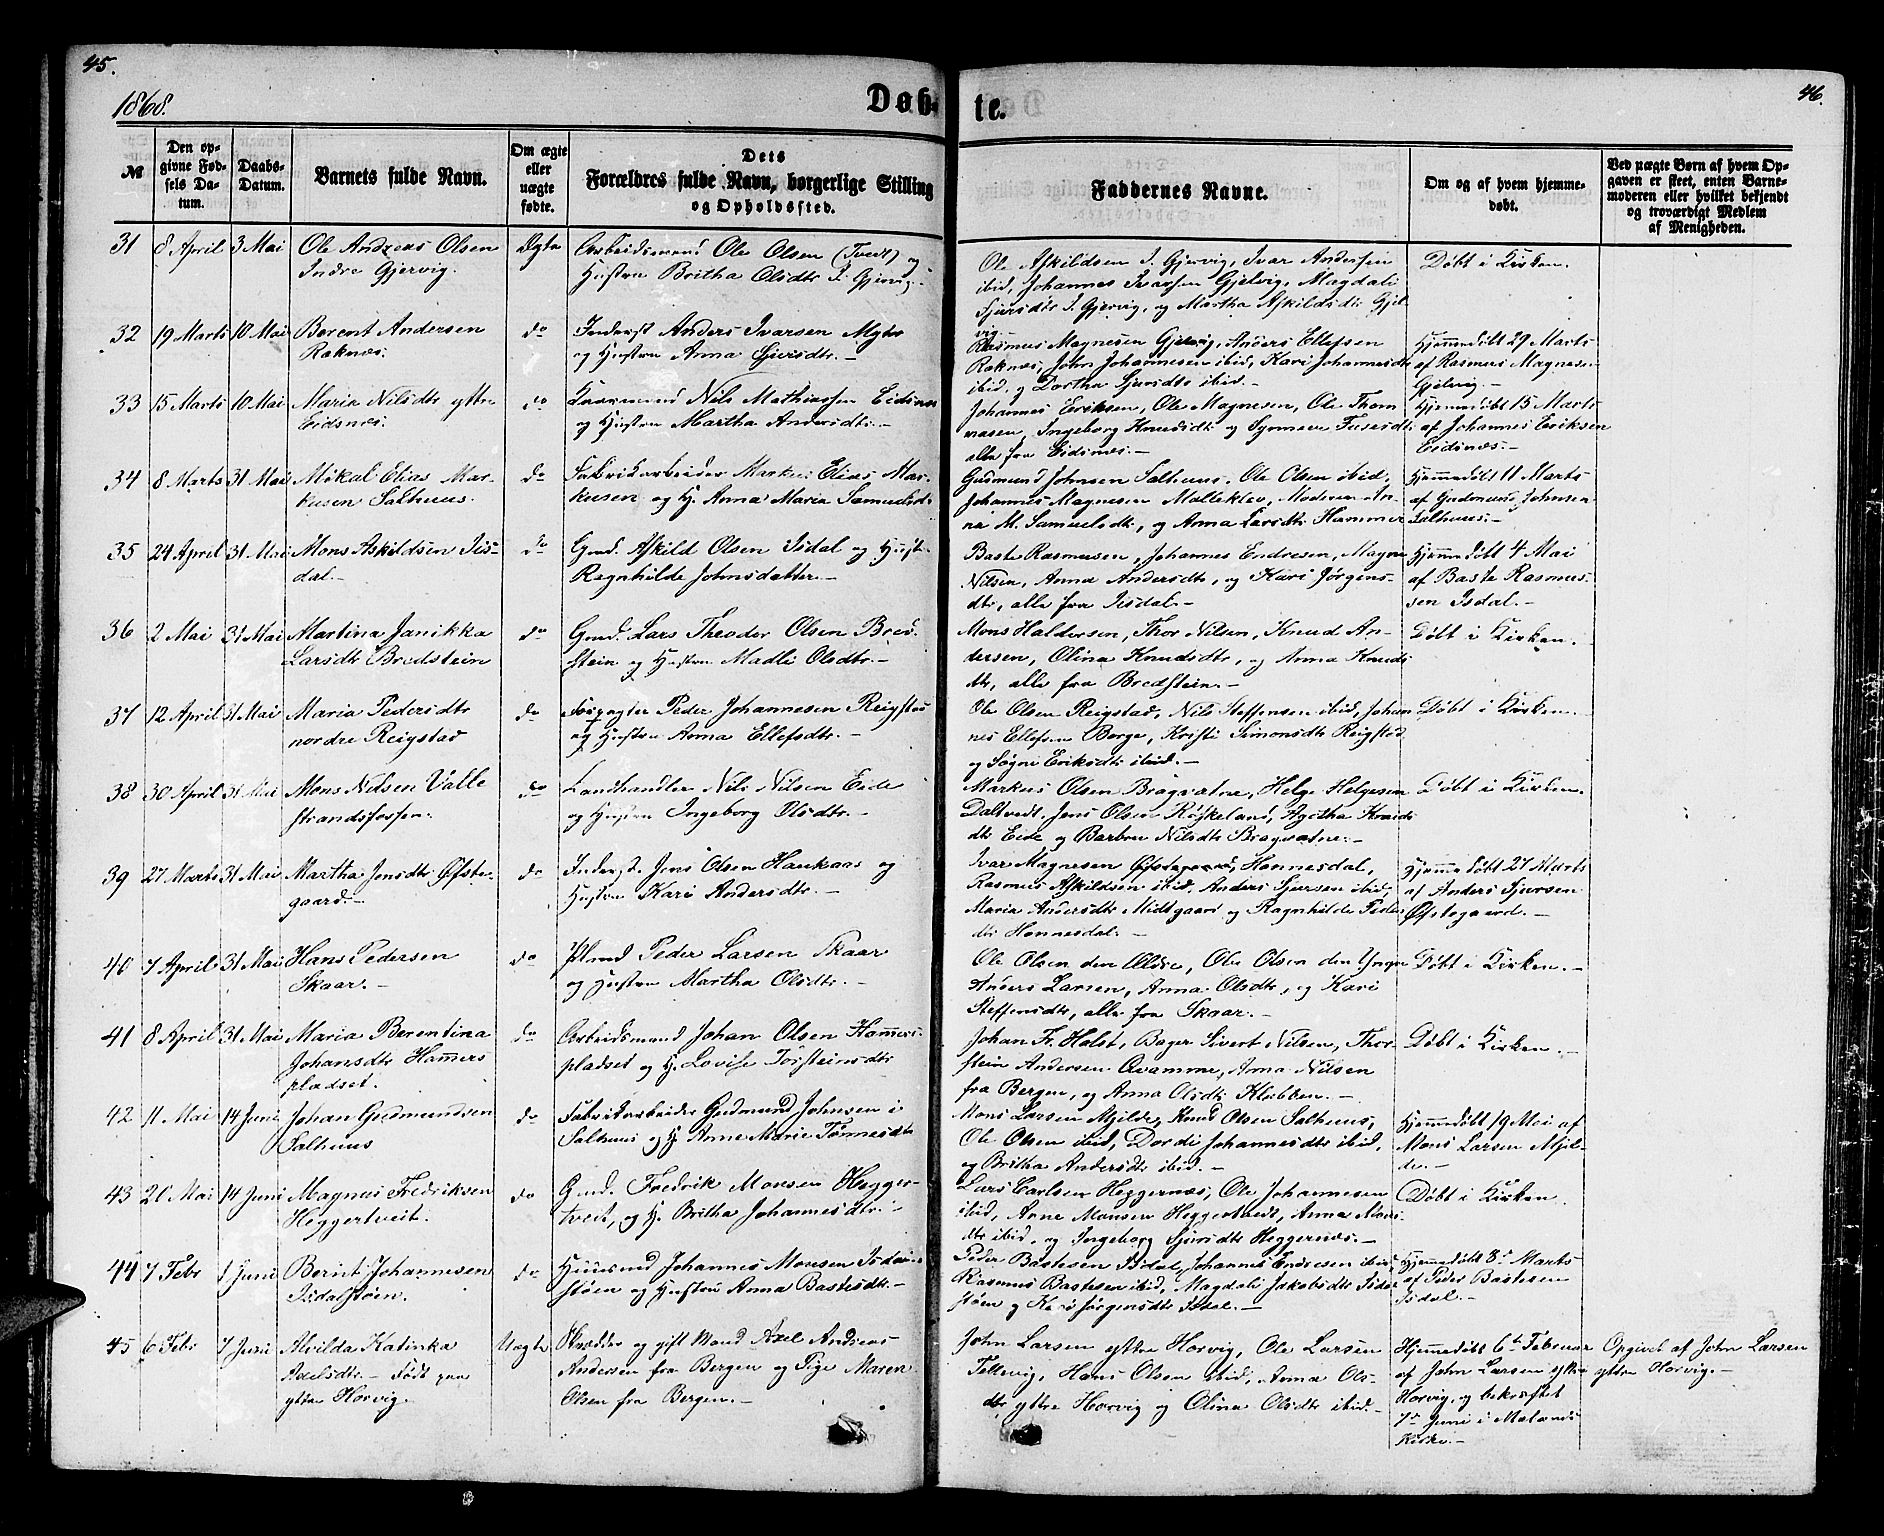 45.
1868.
Døb-
№
Den op-
givne Fød-
sels Da-
tum.
Daabs-
Datum.
Barnets fulde Navn.
Om ægte
eller
uægte
fødte.
Dets
Forældres fulde Navn, borgerlige Stilling
og Opholdssted.
31 8 April 3 Mai Ole Andreas Olsen Ægte Arbeidsmand Ole Olsen (Tvedt) og
Indre Gjervig. Hustru Britha Olsdtr I. Gjervig.
32 19 Marts 10 Mai Berent Andersen do Inderst Anders Ivarsen Myhr
Raknæs. og Hustru Anna Sjursdtr. -
33 15 Marts 10 Mai Maria Nilsdtr yttre do Nils Mathiassen Eidsnes
Eidsnæs. og Hustru Martha Andersdtr. -
34 8 Marts 31 Mai Mikal Elias Mar- do Fabrikarbeider Markus Elias Mar-
kusen Salhuus. kusen og H. Anna Maria Samuelsd.
35 24 April 31 Mai Mons Askildsen Iis- do Gmd. Askild Olsen Isdal og Hustr.
dal. - Ragnhilde Johnsdatter. -
36 2 Mai 31 Mai Martina Janikka do Gmd. Lars Theodor Olsen Bred-
Larsdtr Bredstein stein og Hustru Madli Olsdtr. -
37 12 April 31 Mai Maria Pedersdtr do Forpagter Peder Johannesen Reigstad
nordre Reigstad og Hustru Anna Ellefsdtr. -
38 30 April 31 Mai Mons Nilsen Valle do Landhandler Nils Nilsen Eide
strandsfossen. og Hustru Ingeborg Olsdtr. -
39 27 Marts 31 Mai Martha Jensdtr Øfste- do Inderst Jens Olsen Haukaas og
gaard. - Hustru Kari Andersdtr. -
40 7 April 31 Mai Hans Pedersen do Plmd Peder Larsen Skaar
Skaar. - og Hustru Martha Olsdtr. -
41 8 April 31 Mai Maria Berentina do Arbeidsmand Johan Olsen Hamers-
Johansdtr Hamers pladset og H. Lovise Torsteinsdtr
pladset.
42 11 Mai 14 Juni Johan Gudmundsen do Fabrikarbeider Gudmund Johnsen i
Salhuus Salhuus og H. Anne Marie Tønnesdtr
43 20 Mai 14 Juni Magnus Fredriksen do Gmd. Fredrik Monsen Hegger-
Heggertveit. tveit, og H. Britha Johannesdtr. -
44 7 Febr 1 Juni Berint Johannesen do Huusmd Johannes Monsen Isdal-
Isdalstøen. støen og Hustru Anna Bastesdtr. -
45 6 Febr 7 Juni Alvilda Katinka Uægte Skrædder og gift Mand Axel Andreas
Axelsdtr. - Født paa Andersen fra Bergen og Pige Maren
yttre Horvig. Olsen fra Bergen. -
te.
46.
Faddernes Navne.
Om og af hvem hjemme-
døbt.
Ved uægte Børn af hvem Op-
gaven er skeet, enten Barne-
moderen eller hvilket bekjendt
og troværdigt Medlem
af Menigheden.
Ole Askildsen I. Gjervig, Ivar Andersen Døbt i Kirken.
ibid, Johannes Ivarsen Gjelvig, Magdali
Sjursdtr I. Gjervig, og Martha Askildsdtr Gjel
vig. -
Rasmus Magnesen Gjelvig, Anders Ellefsen Hjemmedøbt 29 Marts
Raknæs, John Johannesen ibid, Kari Johannesdtr af Rasmus Magnesen
ibid, og Dorthea Sjursdtr ibid. - Gjelvig. -
Johannes Eriksen, Ole Magnesen, Ole Thom Hjemmedøbt 15 Marts
masen, Ingeborg Knudsdtr og Synneva af Johannes Eriksen
alle fra Eidsnæs. - Eidsnæs. -
Gudmund Johnsen Salhuus, Ole Olsen ibid, Hjemmedøbt 11 Marts
Johannes Magnesen Molleklev, Moderen An- af Gudmund Johnsen
na M. Samuelsdtr, og Anna Larsdtr Hammer Salhuus. -
Baste Rasmussen, Johannes Endresen, Magne Hjemmedøbt 4 Mai
Nilsen, Anna Andersdtr, og Kari Jørgens- af Baste Rasmus-
dtr, alle fra Iisdal. - sen Isdal. -
Mons Haldorsen, Thor Nilsen, Knud An- Døbt i Kirken.
dersen, Olina Knudsdtr, og Anna Knuds
dtr, alle fra Bredstein. -
Ole Olsen Reigstad, Nils Steffensen ibid, Johan Døbt i Kirken.
nes Ellefsen Borge, Kristi Simonsdtr Reigstad
og Søgni Eriksdtr ibid. -
Markus Olsen Bragvatne, Helge Helgesen Døbt i Kirken.
Daltvedt, Jens Olsen Røskeland, Agatha Knuds
dtr Eide og Barbro Nilsdtr Bragvatne. -
Ivar Magnesen Øfstegaard, Hannesdal, Hjemmedøbt 27 Marts
Rasmus Askildsen ibid, Anders Sjursen ibid, af Anders Sjursen
Maria Andersdtr Midtgaard og Ragnhilde Peder Øfstegaard. -
dtr Hannesdal. -
Ole Olsen den Ældre, Ole Olsen den Yngre Døbt i Kirken. -
Anders Larsen, Anna Olsdtr, og Kari
Steffensdtr, alle fra Skaar. -
Johan Fr. Holst, Bager Sivert Nilsen, Thor- Døbt i Kirken. -
stein Andersen Qvamme, Anna Nilsen
fra Bergen, og Anna Olsdtr Klubben. -
Mons Larsen Mjelde, Knud Olsen Salhuus, Hjemmedøbt 19 Mai af
Ole Olsen ibid, Dordi Johannesdtr ibid, Mons Larsen Mjel-
og Britha Andersdtr ibid. - de. -
Lars Carlsen Heggernæs, Ole Johannesen Døbt i Kirken.
ibid, Arne Monsen Heggertvedt, Anna Mons-
dtr ibid, og Ingeborg Sjursdtr Heggernæs. -
Peder Bastesen Isdal, Johannes Endresen ibid, Hjemmedøbt 8de Marts
Rasmus Bastesen ibid, Magdali Jakobsdtr Isdal af Peder Bastesen
støen og Kari Jørgensdtr Isdal. - Isdal. -
John Larsen yttre Horvig, Ole Larsen Hjemmedøbt 6te Februar Opgivet af John Larsen
Tellevig, Hans Olsen ibid, Anna Ols- af John Larsen yttre yttre Horvig. -
dtr yttre Horvig og Olina Olsdtr ibid. - Horvig, og bekræftet
7de Juni i Mælands
Kirke. -